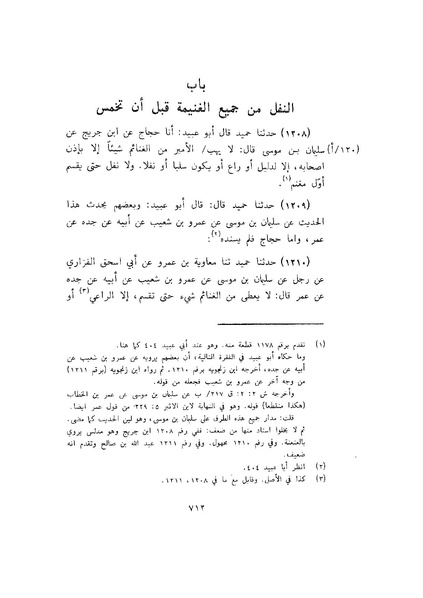 باب
النفل من جميع الغنيمة قبل أن تخمس
(١٢٠٨) حدثنا حميد قال أبو عبيد: أنا حجاج عن ابن جريج عن
(١٢٠/أ) سليمان بن موسى قال: لا يهب/ الأمير من الغنائم شيئاً إلا بإذن
اصحابه، إلا لدليل أو راع أو يكون سلبا أو نفلا. ولا نفل حتى يقسم
أوّل مغنم(١).
(١٢٠٩) حدثنا حميد قال: قال أبو عبيد: وبعضهم يحدث هذا
الحديث عن سليمان بن موسى عن عمرو بن شعيب عن أبيه عن جده عن
عمر، واما حجاج فلم يسنده(٢):
(١٢١٠) حدثنا حميد ثنا معاوية بن عمرو عن أبي اسحق الفزاري
عن رجل عن سليمان بن موسى عن عمرو بن شعيب عن أبيه عن جده
عن عمر قال: لا يعطى من الغنائم شيء حتى تقسم، إلا الراعي(٣) أو
(١) تقدم برقم ١١٧٨ قطعة منه. وهو عند أبي عبيد ٤٠٤ كما هنا.
وما حكاه أبو عبيد في الفقرة التالية، أن بعضهم يرويه عن عمرو بن شعيب عن
أبيه عن جده، أخرجه ابن زنجويه برقم ١٢١٠. ثم رواه ابن زنجويه (برقم ١٢١١)
من وجه آخر عن عمرو بن شعيب فجعله من قوله.
وأخرجه ش ٢: ٢: ق ٢١٧/ ب عن سليمان بن موسى عن عمر بن الخطاب
(هكذا منقطعا) قوله. وهو في النهاية لابن الاثير ٥: ٢٢٩ من قول عمر ايضا.
قلت: مدار جميع هذه الطرق على سليمان بن موسى، وهو لين الحديث كما مضى.
ثم لا يخلوا اسناد منها من ضعف: ففي رقم ١٢٠٨ ابن جريج وهو مدلس يروي
بالعنعنة. وفي رقم ١٢١٠ مجهول. وفي رقم ١٢١١ عبد الله بن صالح وتقدم انه
ضعيف.
(٢) انظر أبا عبيد ٤٠٤.
(٣) كذا في الأصل. وقابل مع ما في ١٢٠٨، ١٢١١.
٧١٣